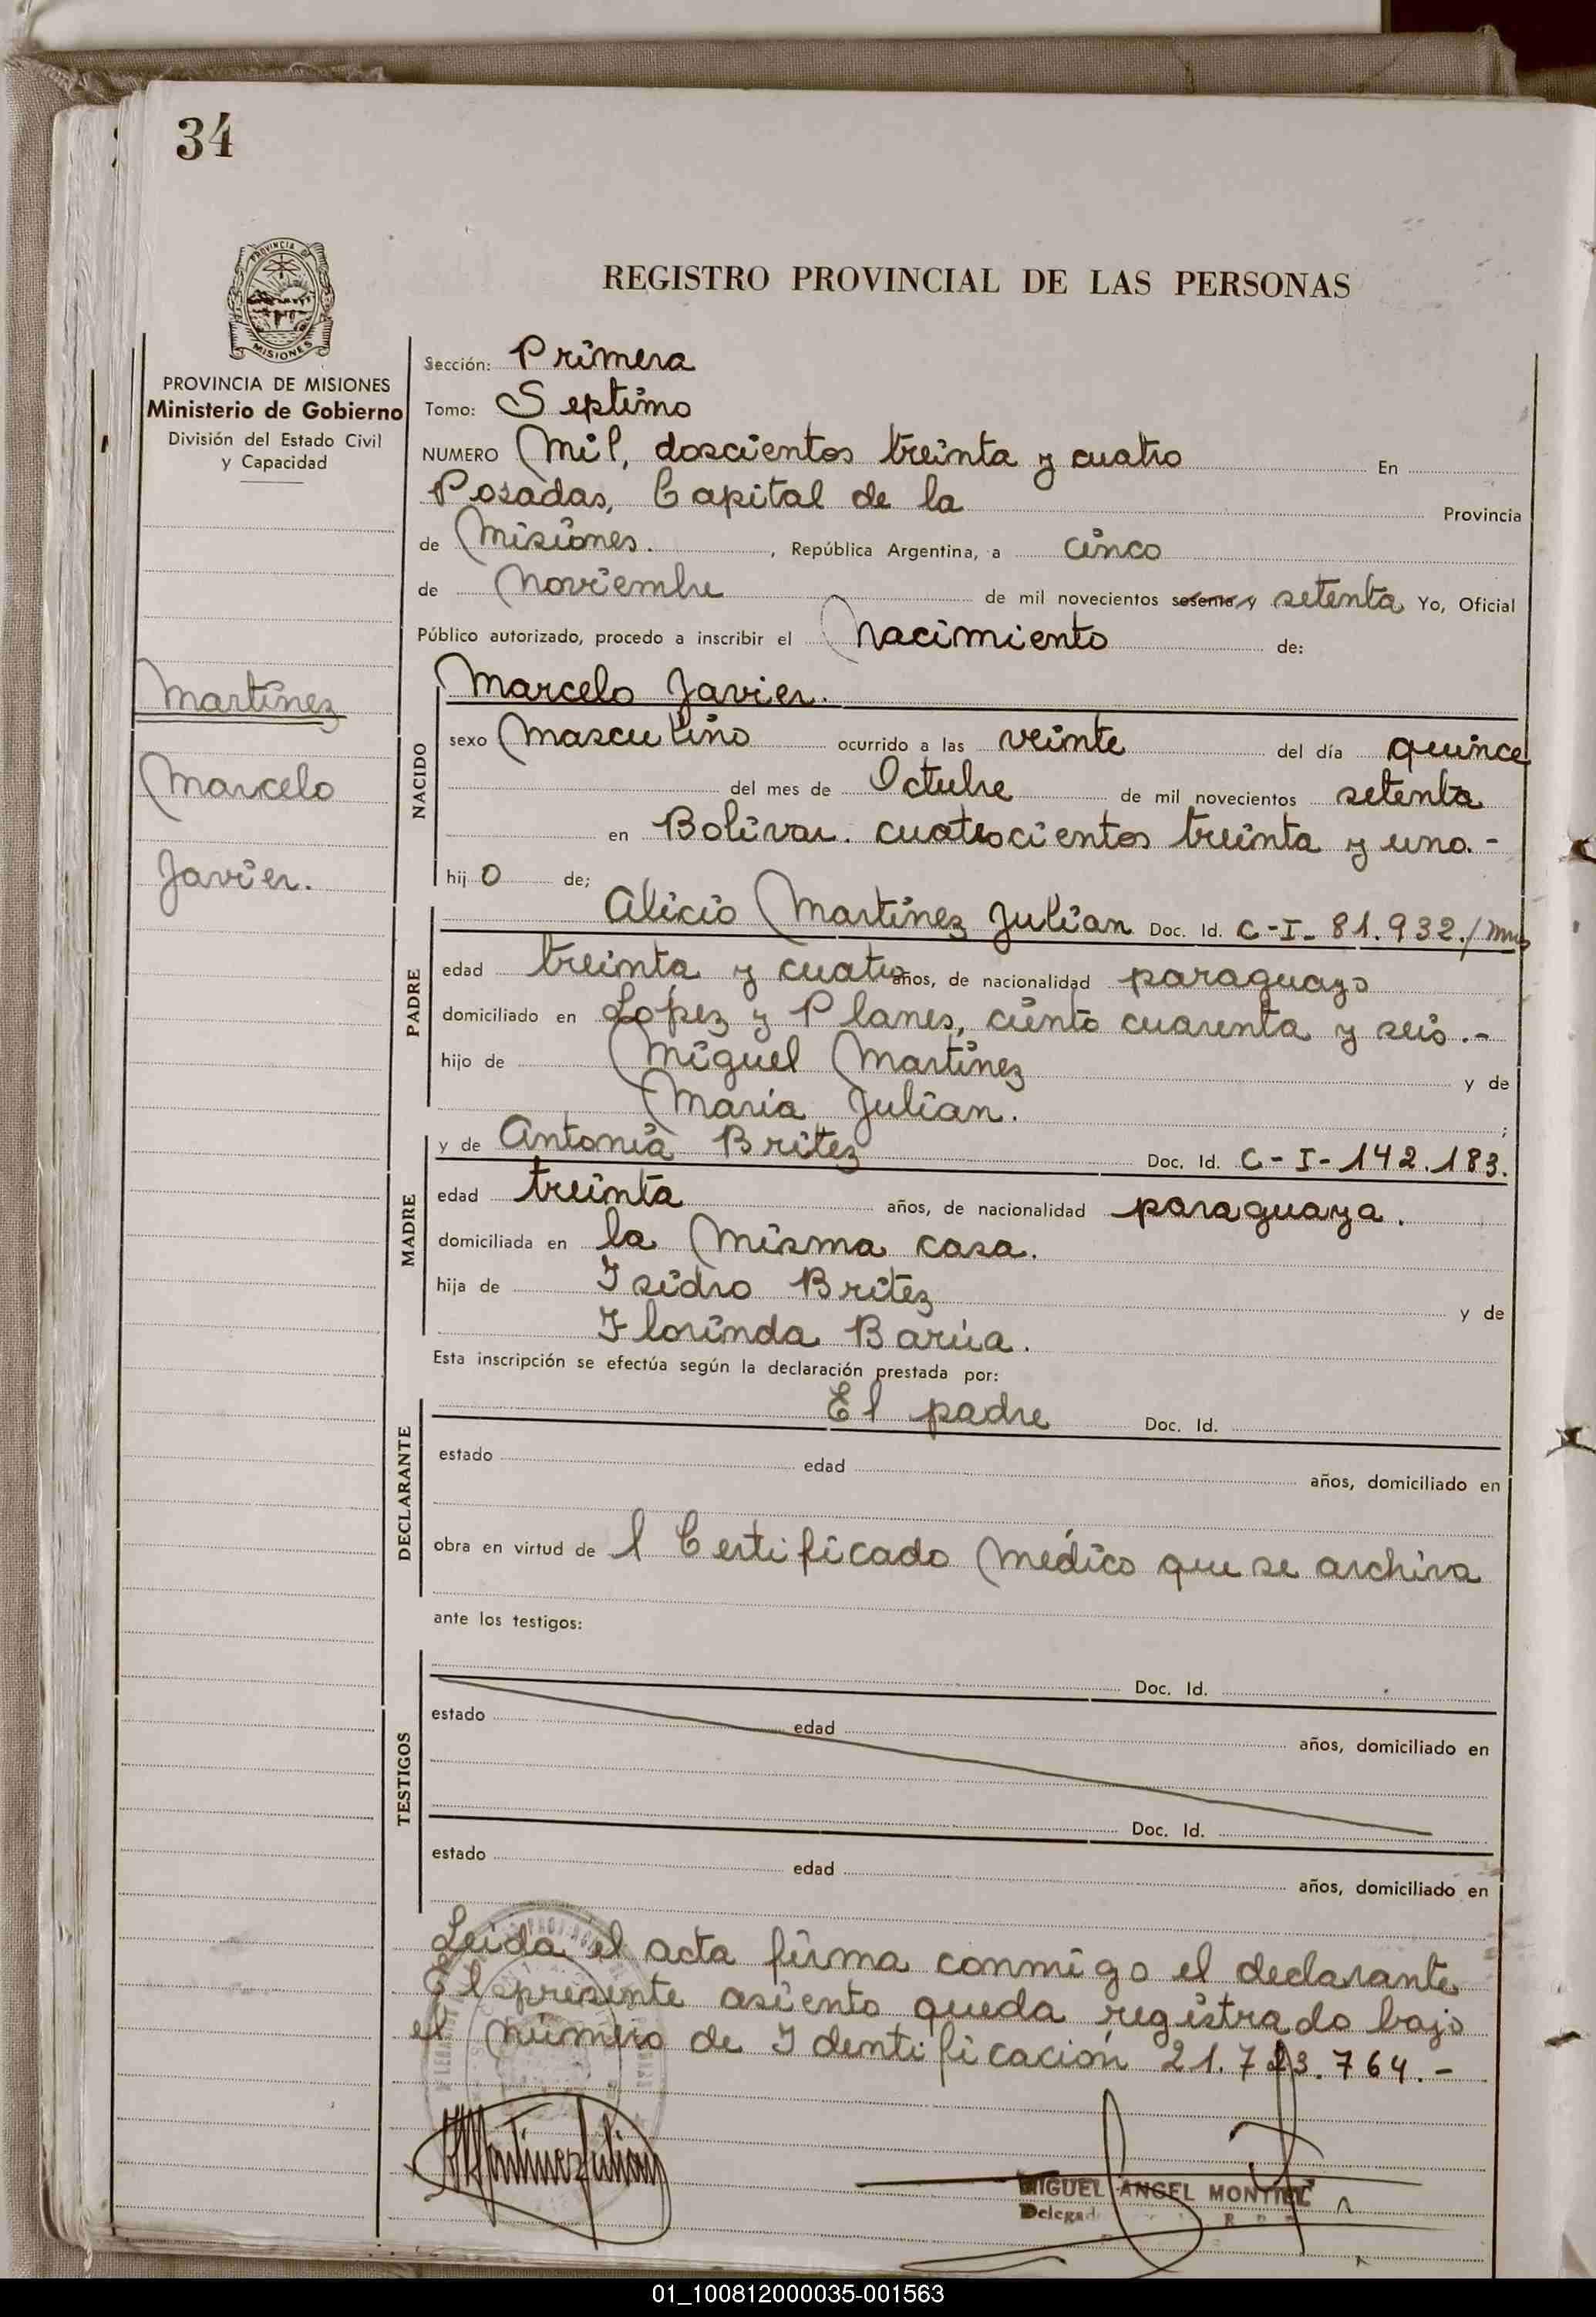 34
REGISTRO PROVINCIAL DE LAS PERSONAS
PROVINCIA DE
MISIONES
PROVINCIA DE MISIONES
Ministerio de Gobierno
División del Estado Civil
y Capacidad
Martínez
Marcelo
Javier.
Sección: Primera
Tomo: Septimo
NUMERO Mil, doscientos treinta y cuatro En
Posadas, Capital de la Provincia
de Misiones. , República Argentina, a cinco
de Noviembre de mil novecientos sesenta y setenta Yo, Oficial
Público autorizado, procedo a inscribir el Nacimiento de:
Marcelo Javier.
NACIDO
sexo Masculino ocurrido a las veinte del día quince
del mes de Octubre de mil novecientos setenta
en Bolívar. cuatrocientos treinta y uno.-
hij o de;
PADRE
Alicio Martínez Julian Doc. Id. C-I- 81.932./Mns
edad treinta y cuatro años, de nacionalidad paraguayo
domiciliado en López y Planes, ciento cuarenta y seis.-
hijo de Miguel Martínez y de
María Julian. ;
MADRE
y de Antonia Britez Doc. Id. C-I-142.183.
edad treinta años, de nacionalidad paraguaya.
domiciliada en la Misma casa.
hija de Isidro Britez y de
Florinda Barúa.
Esta inscripción se efectúa según la declaración prestada por:
DECLARANTE
El padre Doc. Id.
estado edad años, domiciliado en
obra en virtud de l Certificado Médico que se archiva
ante los testigos:
TESTIGOS
Doc. Id.
estado edad años, domiciliado en
Doc. Id.
estado edad años, domiciliado en
Leida el acta firma conmigo el declarante
El presente asiento queda registrado bajo
el número de Identificación 21.723.764.-
Martinez Julian
MIGUEL ANGEL MONTIEL
Delegad
01_100812000035-001563